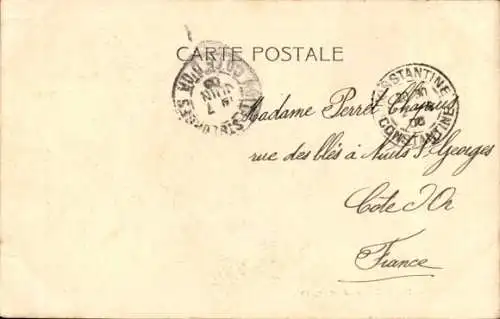 CARTE POSTALE
CONSTANTINE
CONSTANTINE
Madame Perret
rue des blés à Nuits St Georges
Côte d'Or
France